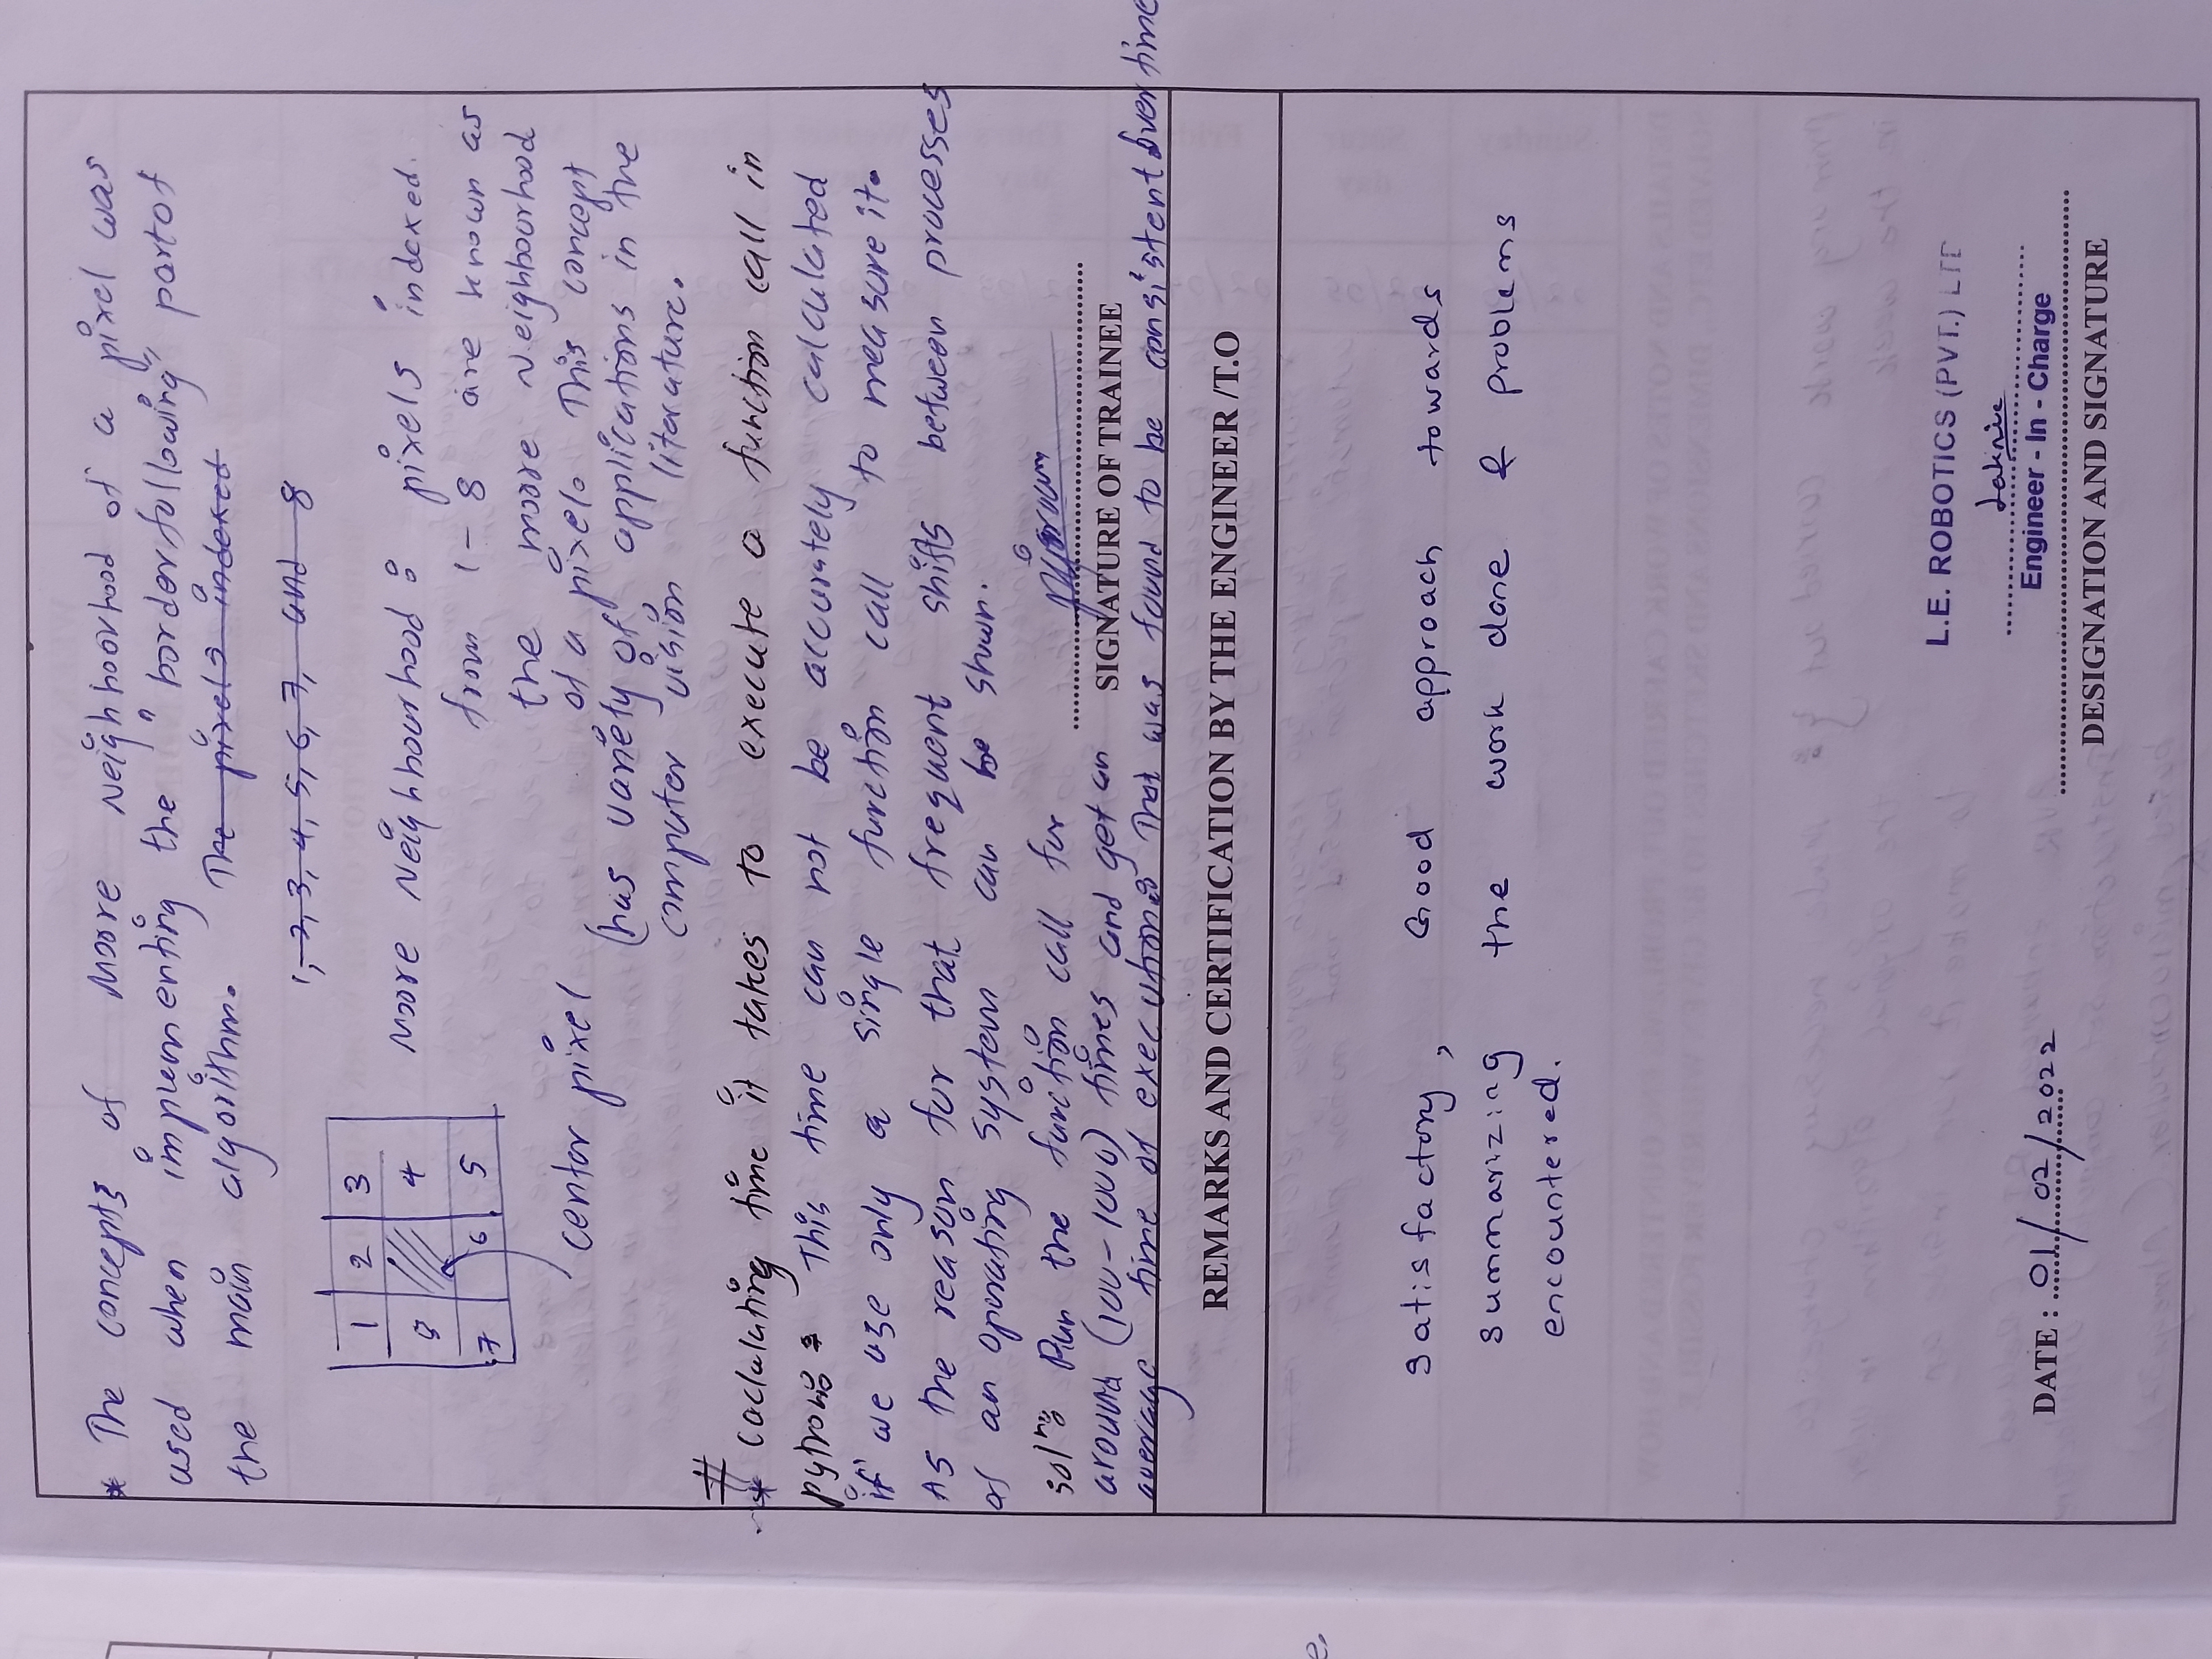 * The concepts of Moore Neighboorhood of a pixel was
used when implementing the "border following" part of
the main algorithm. The pixels indexed
1, 2, 3, 4, 5, 6, 7, and 8
1 2 3
8 4
7 6 5
center pixel
Moore Neighbourhood : pixels indexed.
from 1 - 8 are known as
the moore Neighbourhood
of a pixel. This concept
has variety of applications in the
computer vision literature.
#
* Caclulating time it takes to execute a function call in
python : This time can not be accurately calculated
if we use only a single function call to measure it.
As the reason for that frequent shifts between processes
of an operating system can be shown.
soln: Run the function call for
around (100-1000) times and get an
average time of execution. That was found to be consistent over time
SIGNATURE OF TRAINEE
REMARKS AND CERTIFICATION BY THE ENGINEER /T.O
Satisfactory, Good approach towards
summarizing the work done & problems
encountered.
L.E. ROBOTICS (PVT.) LTD
Engineer - In - Charge
DATE : 01/02/2022
DESIGNATION AND SIGNATURE